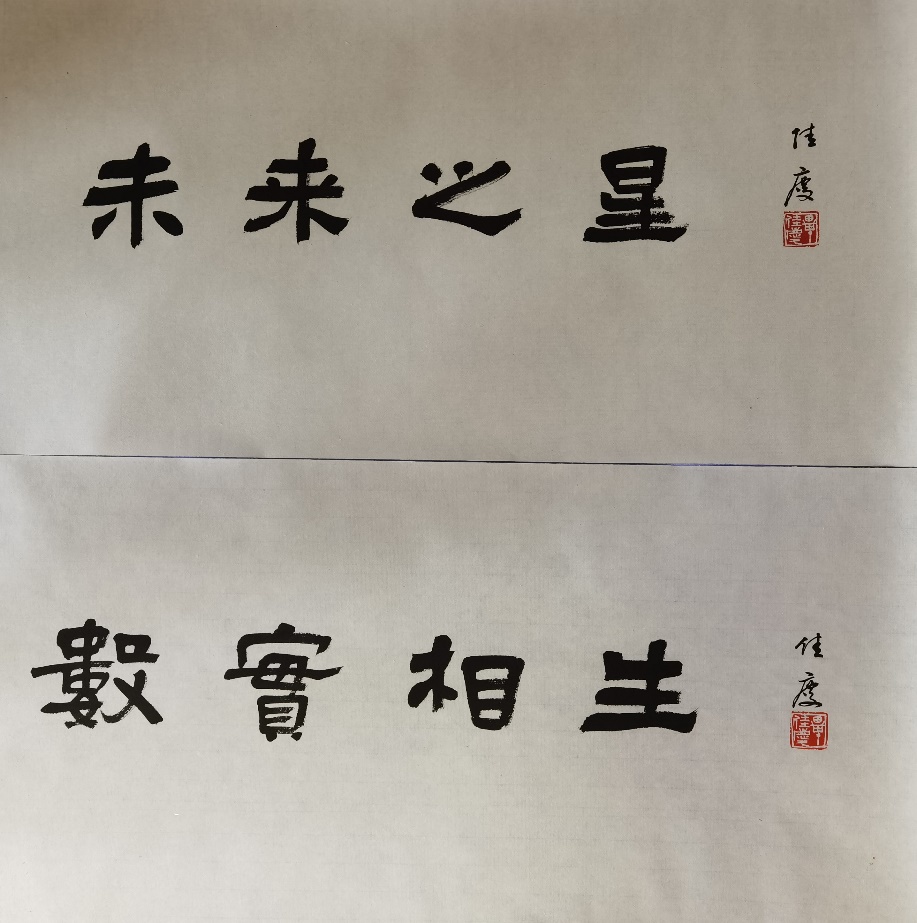 未来之星
佳慶
數實相生
佳慶